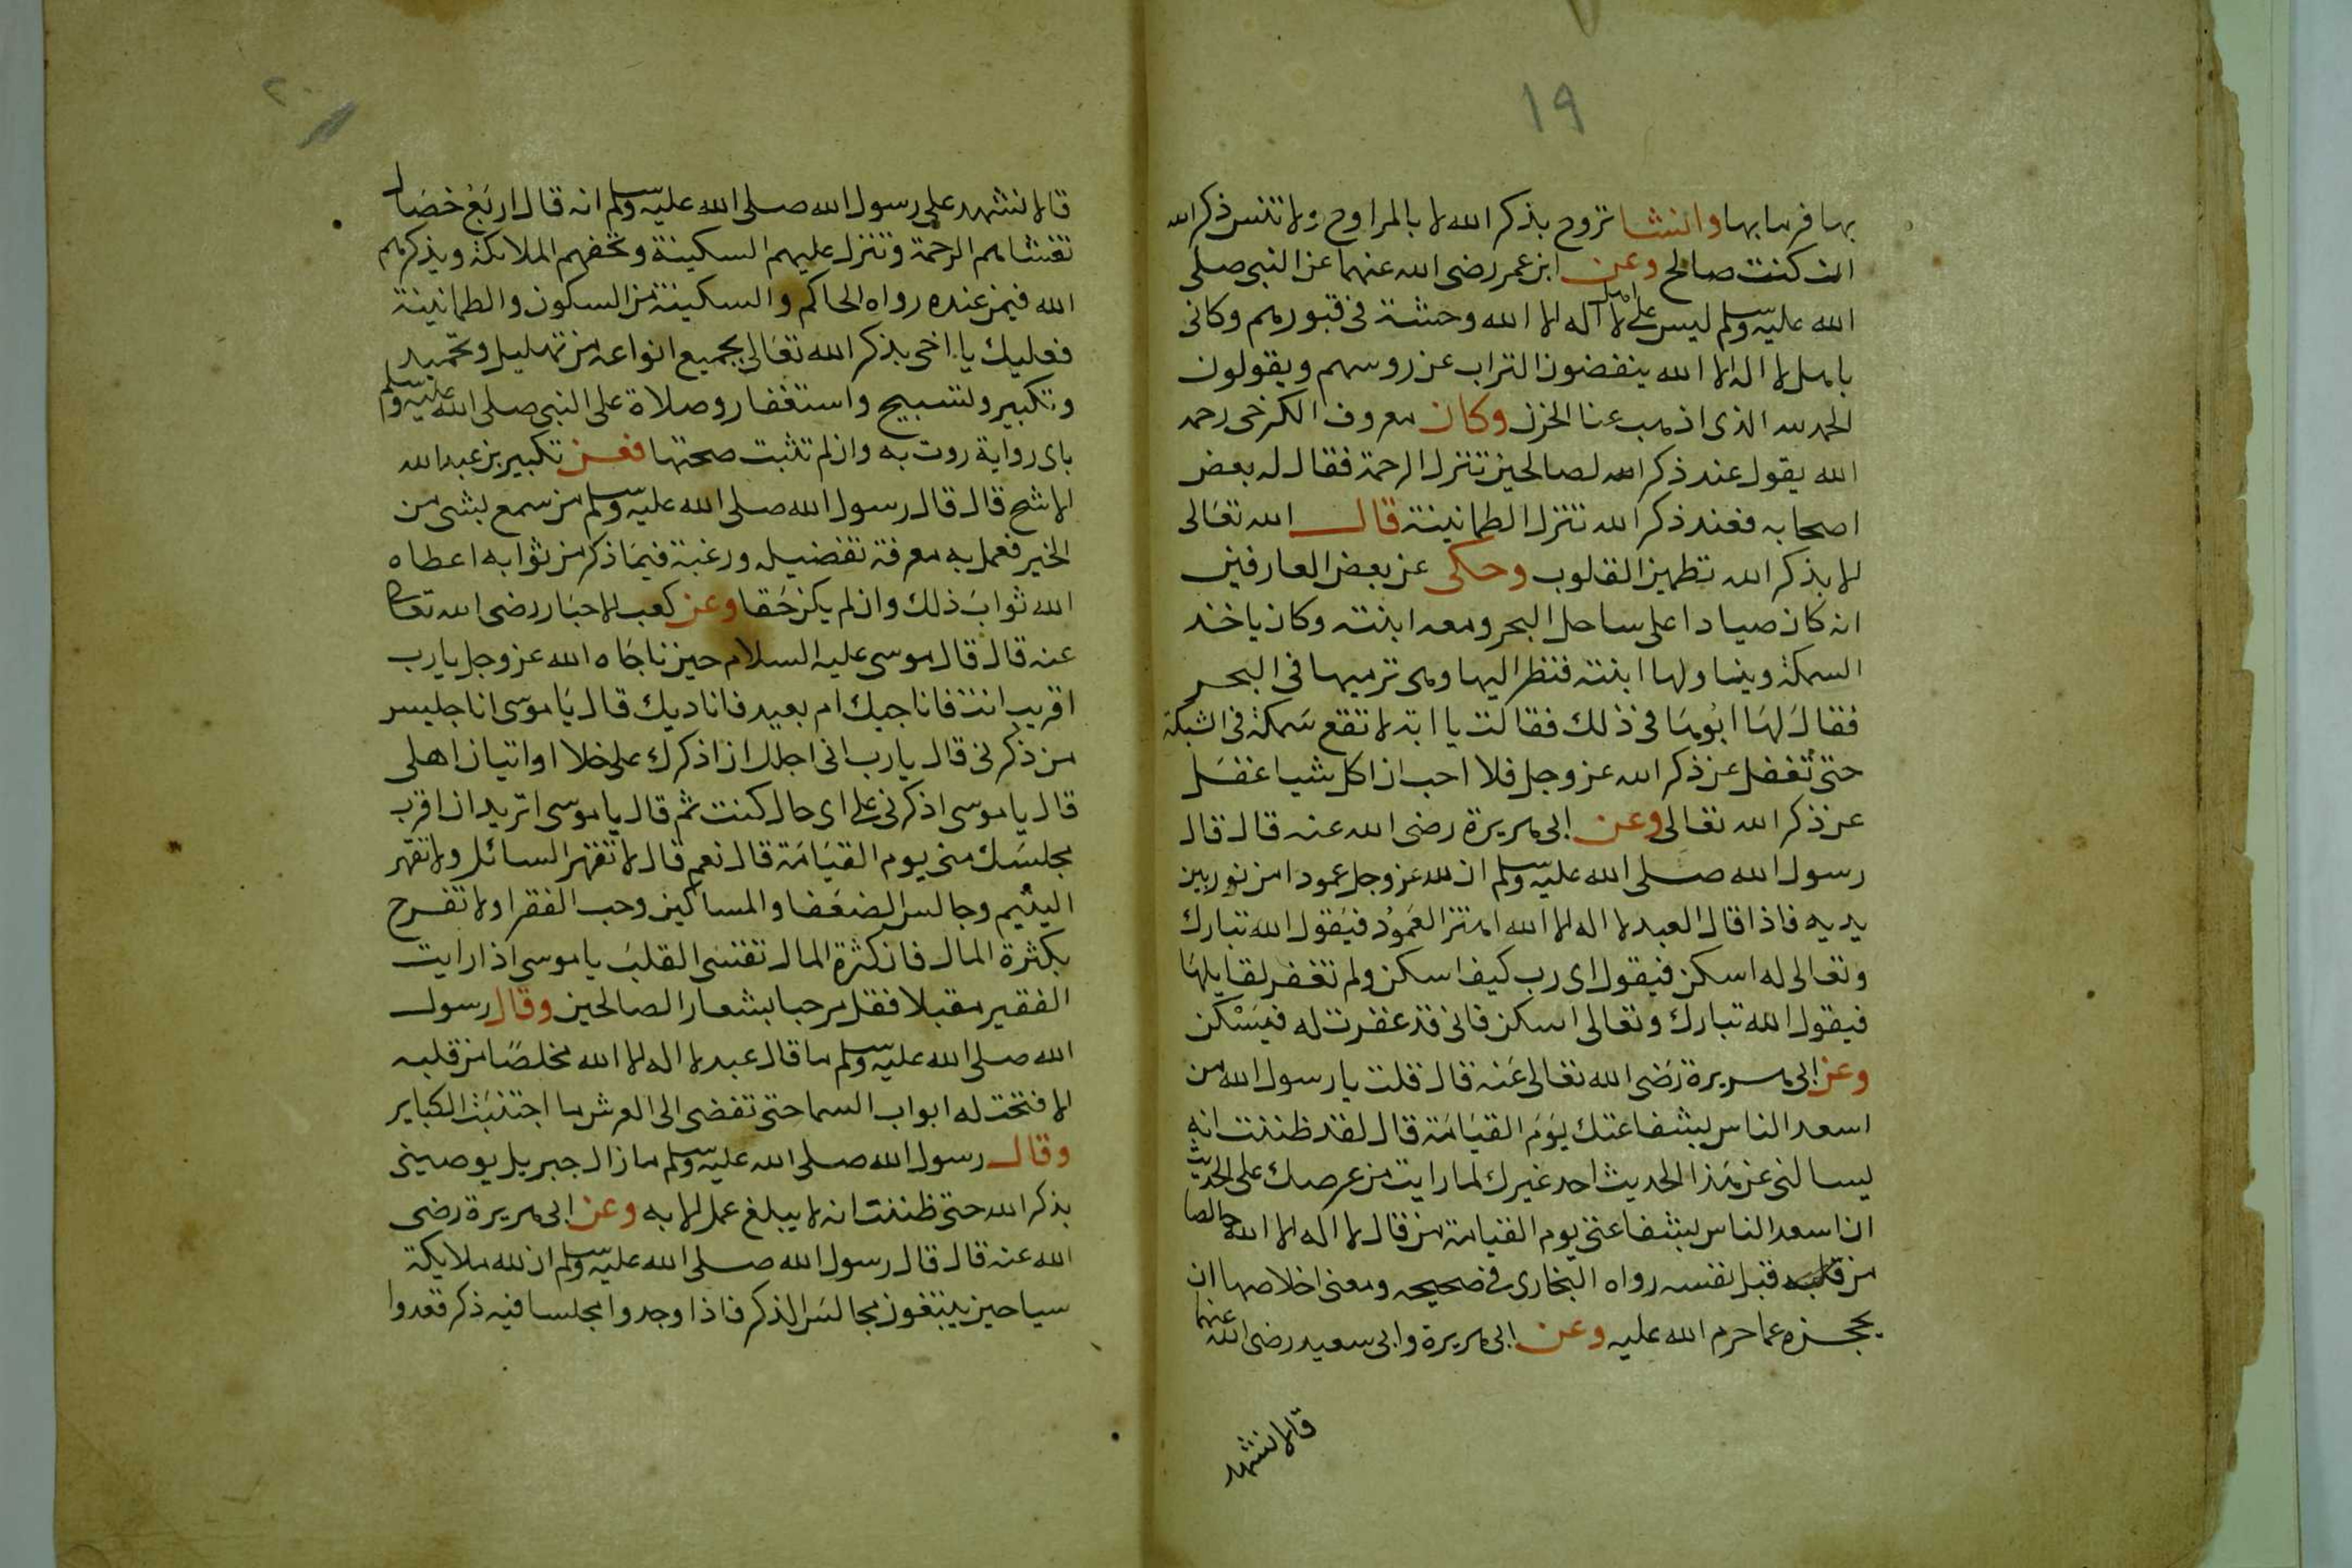 ١٩
بها فرمابها وانشا تروح بذكر الله لا بالمراوح ولا تنس ذكر الله
ان كنت صالح وعن ابن عمر رضى الله عنهما عن النبى صلى
الله عليه وسلم ليس على اهل لا اله الا الله وحشة فى قبورهم وكانى
باهل لا اله الا الله ينفضون التراب عن روسهم ويقولون
الحمد لله الذى اذهب عنا الحزن وكان معروف الكرخى رحمه
الله يقول عند ذكر الله لصالحين تنزل الرحمة فقال له بعض
اصحابه فعند ذكر الله تنزل الطمانينة قال الله تعالى
الا بذكر الله تطمين القلوب وحكى عن بعض العارفين
انه كان صيادا على ساحل البحر ومعه ابنته وكان ياخذ
السمكة ويناولها ابنته فنظر اليها وهى ترميها فى البحر
فقال لها ابوها فى ذلك فقالت يا ابة لا تقع سمكة فى الشبكة
حتى تغفل عن ذكر الله عز وجل فلا احب ان اكل شيا غفل
عن ذكر الله تعالى وعن ابى هريرة رضى الله عنه قال قال
رسول الله صلى الله عليه وسلم ان لله عز وجل عمودا من نور بين
يديه فاذا قال العبد لا اله الا الله اهتز العمود فيقول الله تبارك
وتعالى له اسكن فيقول اى رب كيف اسكن ولم تغفر لقايلها
فيقول الله تبارك وتعالى اسكن فانى قد غفرت له فيسكن
وعن ابى هريرة رضى الله تعالى عنه قال قلت يا رسول الله من
اسعد الناس بشفاعتك يوم القيامة قال لقد ظننت انه
يسالنى عن هذا الحديث احد غيرك لما رايت من عرصك على الحديث
ان اسعد الناس بشفاعتى يوم القيامة من قال لا اله الا الله خالصا
من قلبه قبل نفسه رواه البخارى فى صحيحه ومعنى اخلاصها ان
يحجزه عما حرم الله عليه وعن ابى هريرة وابى سعيد رضى الله عنهما
قالا نشهد
قالا نشهد على رسول الله صلى الله عليه وسلم انه قال اربع خصال
تغشاهم الرحمة وتنزل عليهم السكينة وتحفهم الملائكة ويذكرهم
الله فيمن عنده رواه الحاكم والسكينة من السكون والطمانينة
فعليك يا اخى بذكر الله تعالى بجميع انواعه من تهليل وتحميد
وتكبير وتسبيح واستغفار وصلاة على النبى صلى الله عليه وسلم
باى رواية روت به وان لم تثبت صحتها فعن تكبير بن عبد الله
الاشج قال قال رسول الله صلى الله عليه وسلم من سمع بشى من
الخير فعمل به معرفة تفضيله ورغبة فيما ذكر من ثوابه اعطاه
الله ثواب ذلك وان لم يكن حقا وعن كعب الاحبار رضى الله تعالى
عنه قال قال موسى عليه السلام حين ناجاه الله عز وجل يا رب
اقريب انت فاناجيك ام بعيد فاناديك قال يا موسى انا جليس
من ذكرنى قال يا رب انى اجلك ان اذكرك على خلا او اتيان اهلى
قال يا موسى اذكرنى على اى حال كنت ثم قال يا موسى اتريد ان اقرب
مجلسك منى يوم القيامة قال نعم قال لا تنهر السائل ولا تقهر
اليتيم وجالس الضعفا والمساكين وحب الفقرا ولا تفرح
بكثرة المال فان كثرة المال تقسى القلب يا موسى اذا رايت
الفقير مقبلا فقل مرحبا بشعار الصالحين وقال رسول
الله صلى الله عليه وسلم ما قال عبد لا اله الا الله مخلصا من قلبه
الا فتحت له ابواب السما حتى تفضى الى العرش ما اجتنبت الكباير
وقال رسول الله صلى الله عليه وسلم ما زال جبريل يوصينى
بذكر الله حتى ظننت انه لا يبلغ عمل الا به وعن ابى هريرة رضى
الله عنه قال قال رسول الله صلى الله عليه وسلم ان لله ملايكة
سياحين يبتغون مجالس الذكر فاذا وجدوا مجلسا فيه ذكر قعدوا